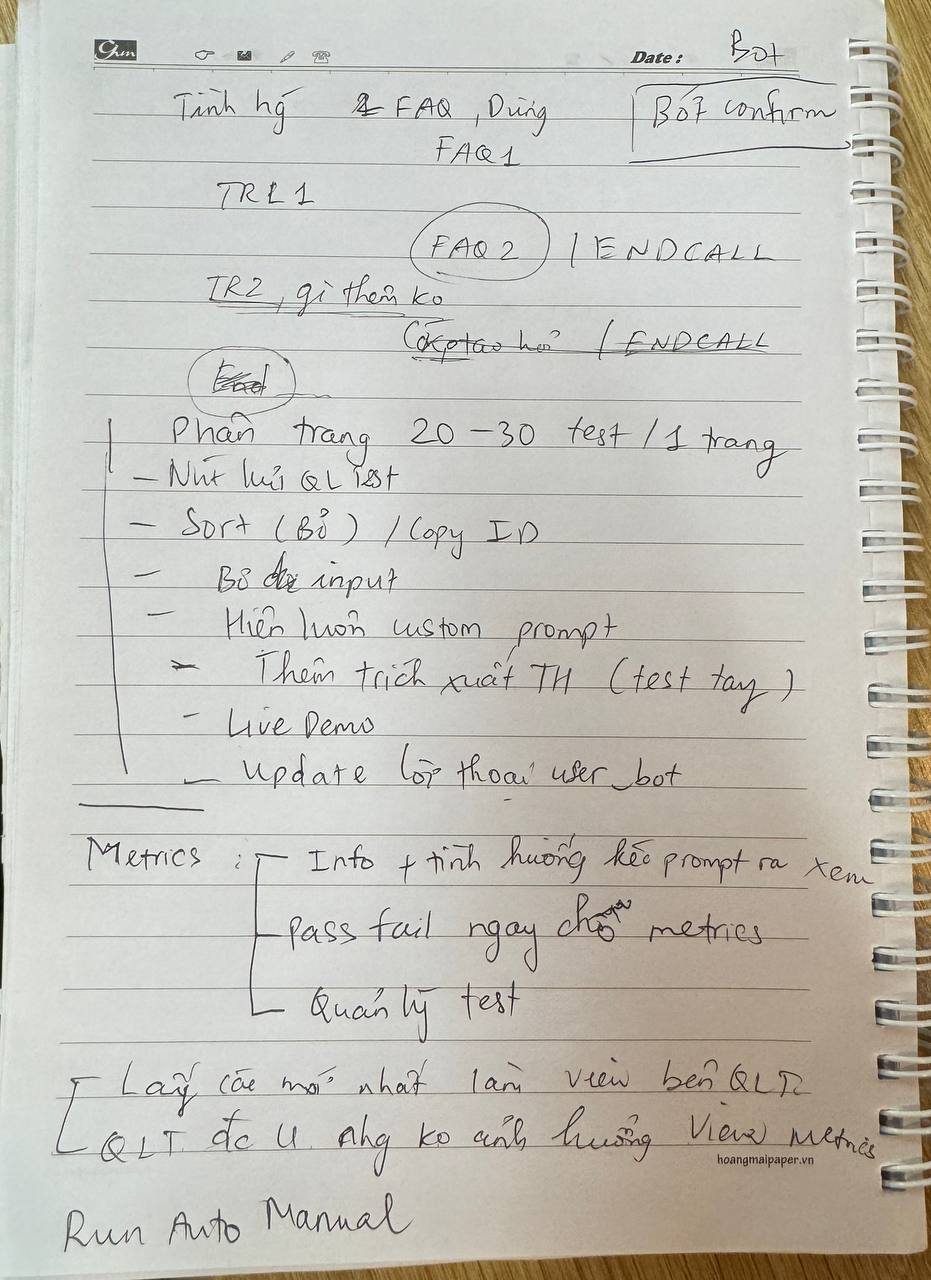 Ghm
Date : Bot
Tình hg 2 FAQ, Dừng Bót confirm
FAQ1
TRL1
FAQ 2 / ENDCALL
TR2, gì thêm ko
/ ENDCALL
End
Phân trang 20 - 30 test / 1 trang
- Nút QL Test
- Sort (Bỏ) / Copy ID
- Bỏ input
- Hiện luôn custom prompt
- Thêm trích xuất TH (test tay)
- Live Demo
- Update lời thoại user_bot
Metrics : Info + tình huống kéo prompt ra xem
Pass fail ngay chỗ metrics
Quản lý test
Lấy cái mới nhất làm view bên QLT
QLT đc U nhg ko ảnh hưởng View metrics
hoangmaipaper.vn
Run Auto Manual